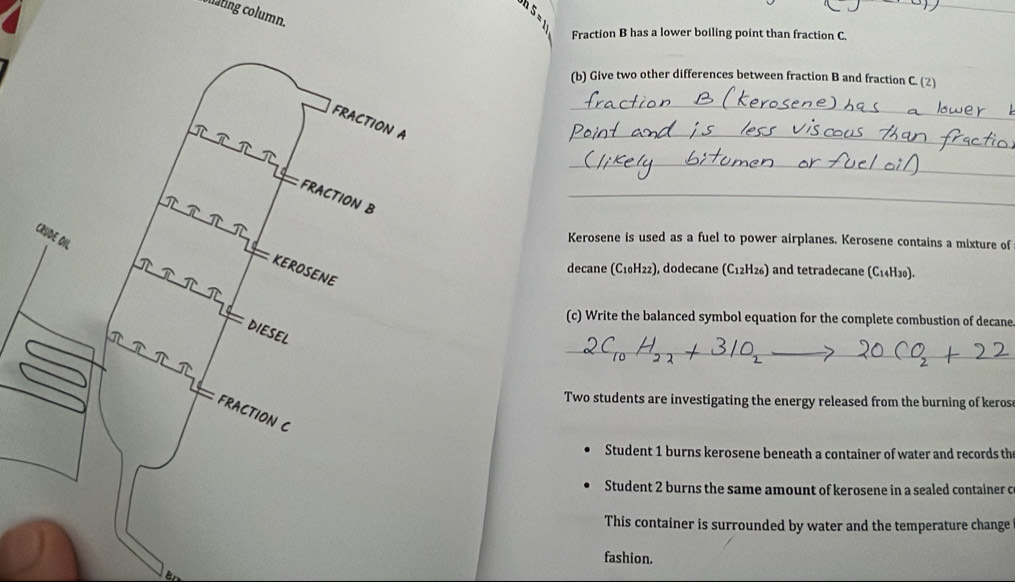 column.
FRACTION A
FRACTION B
KEROSENE
DIESEL
FRACTION C
CRUDE OIL
Fraction B has a lower boiling point than fraction C.
(b) Give two other differences between fraction B and fraction C. (2)
fraction B (kerosene) has a lower
point and is less viscous than
(likely bitumen or fuel oil)
Kerosene is used as a fuel to power airplanes. Kerosene contains a mixture of
decane (C₁₀H₂₂), dodecane (C₁₂H₂₆) and tetradecane (C₁₄H₃₀).
(c) Write the balanced symbol equation for the complete combustion of decane.
2C₁₀H₂₂ + 31O₂ → 20CO₂ + 22
Two students are investigating the energy released from the burning of
• Student 1 burns kerosene beneath a container of water and records
• Student 2 burns the same amount of kerosene in a sealed container
This container is surrounded by water and the temperature change
fashion.